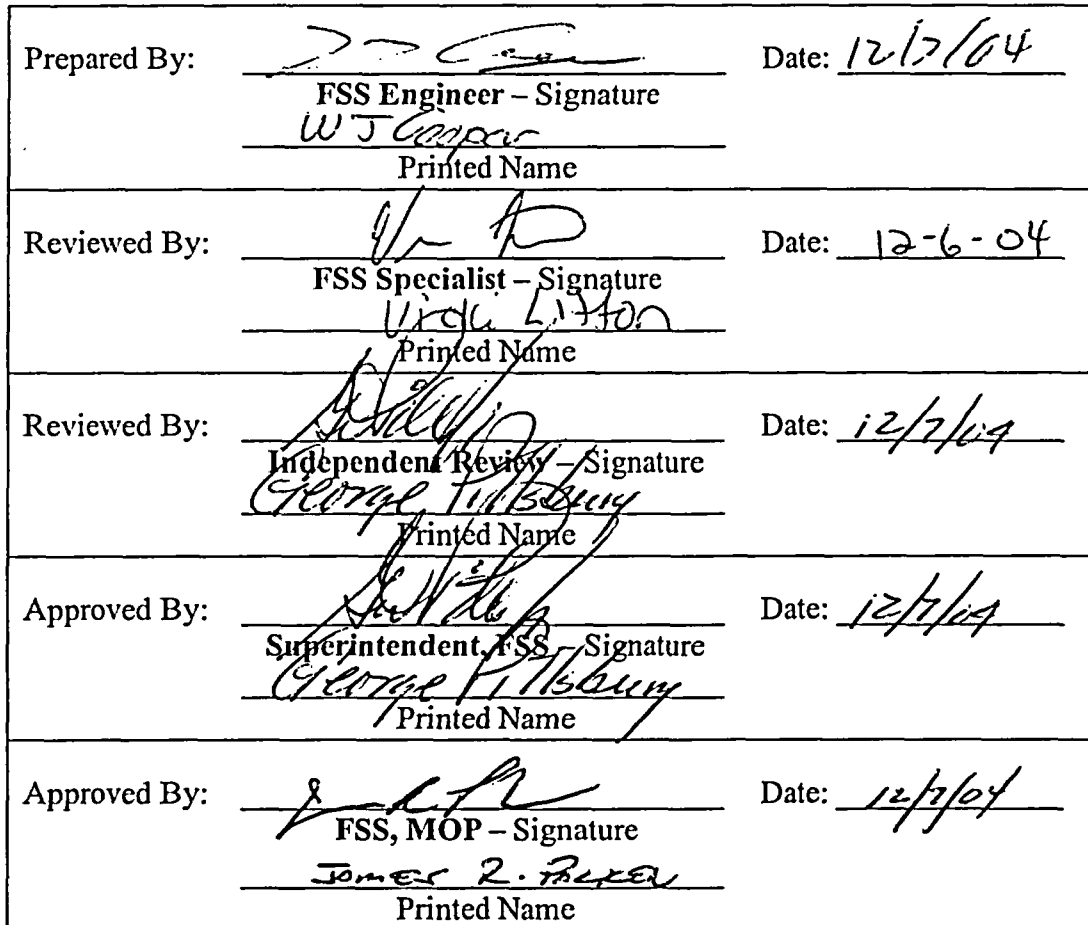 Prepared By: Date: 12/7/04
FSS Engineer – Signature
W J Cooper
Printed Name
Reviewed By: Date: 12-6-04
FSS Specialist – Signature
Litton
Printed Name
Reviewed By: Date: 12/7/04
Independent Review – Signature
George Pillsbury
Printed Name
Approved By: Date: 12/7/04
Superintendent, FSS – Signature
George Pillsbury
Printed Name
Approved By: Date: 12/7/04
FSS, MOP – Signature
James R.
Printed Name